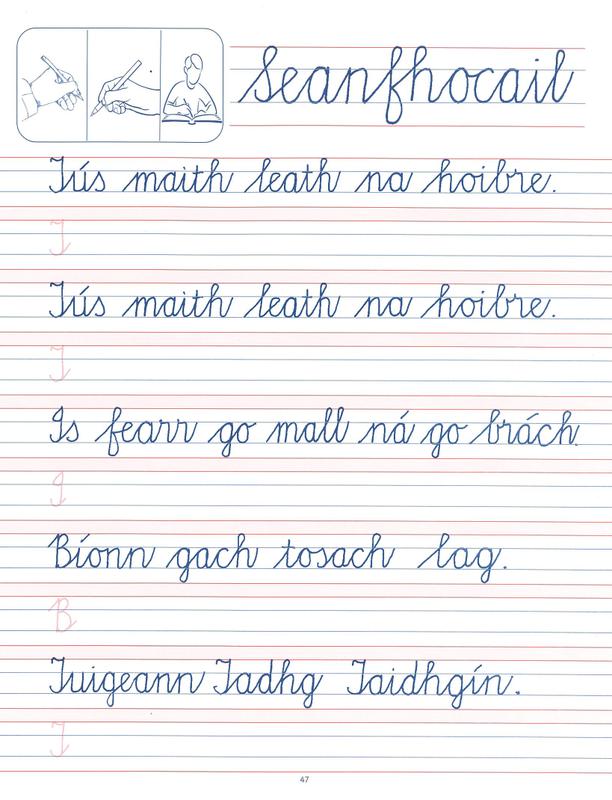 Seanfhocail
Tús maith leath na hoibre.
T
Tús maith leath na hoibre.
T
Is fearr go mall ná go brách.
I
Bíonn gach tosach lag.
B
Tuigeann Tadhg Taidhgín.
T
47